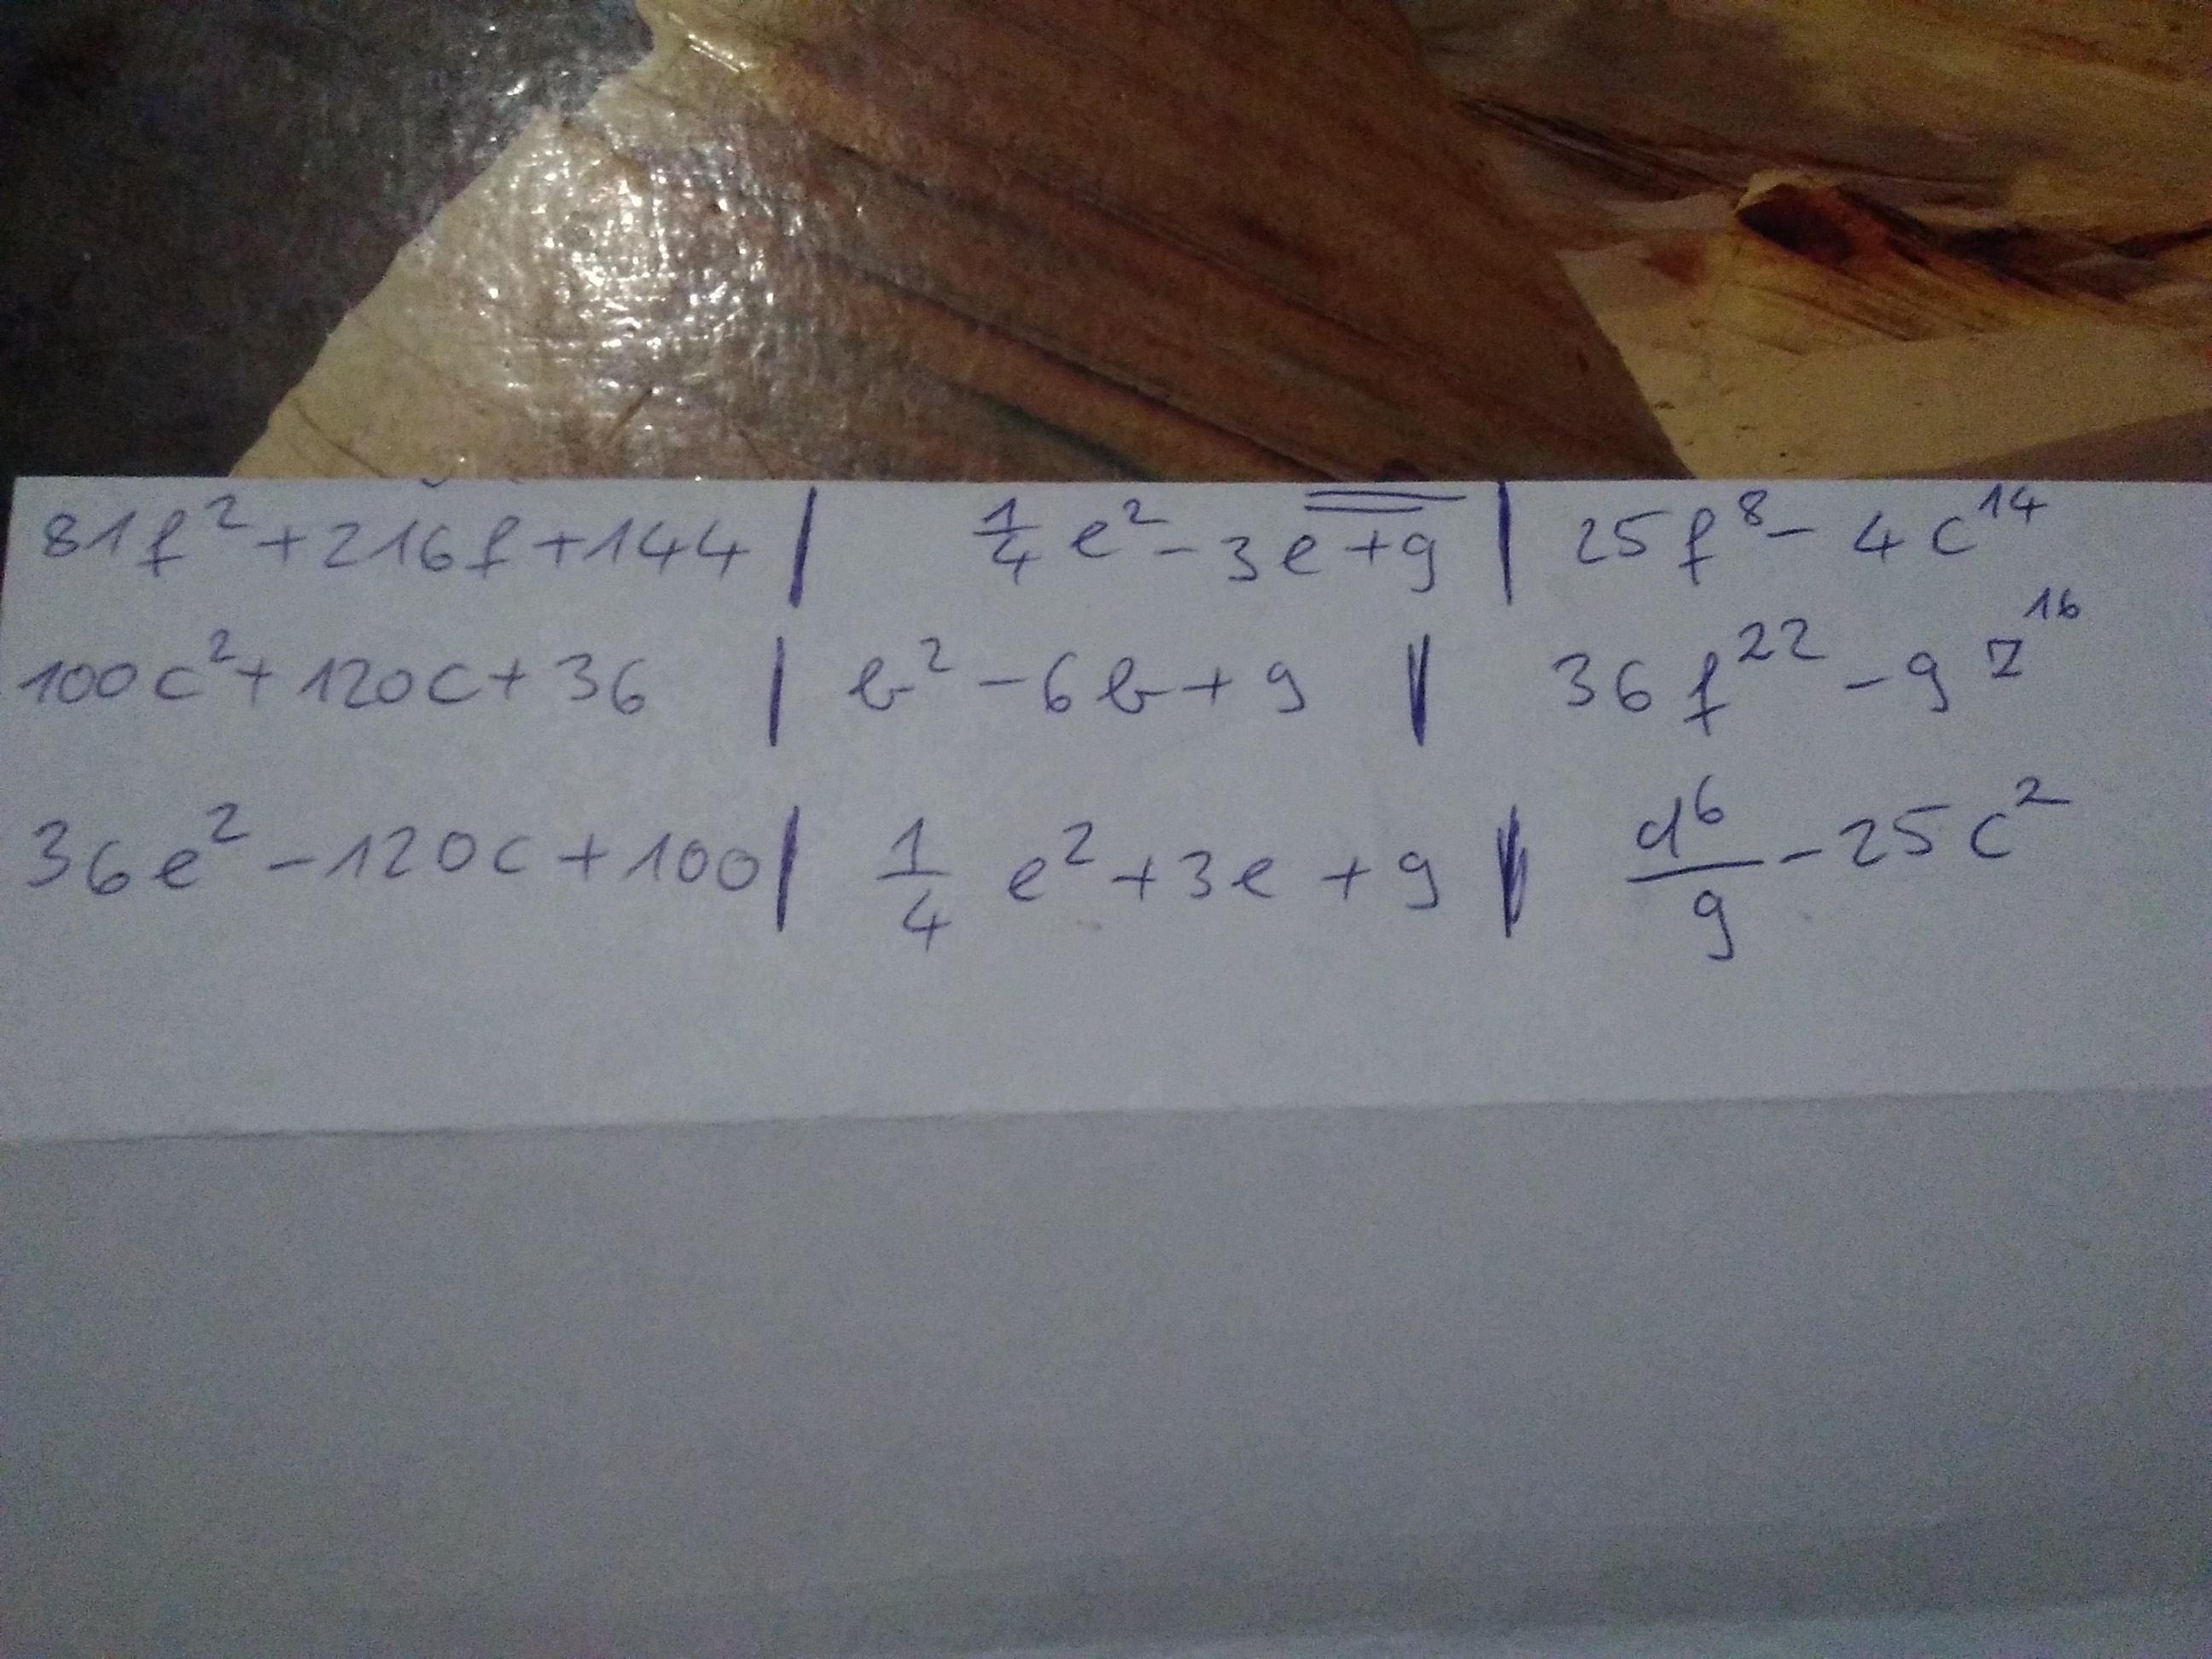 81f² + 216f + 144 | 1/4 e² - 3e + 9 | 25f⁸ - 4c¹⁴
100c² + 120c + 36 | b² - 6b + 9 | 36f²² - 9z¹⁶
36e² - 120c + 100 | 1/4 e² + 3e + 9 | d⁶/9 - 25c²